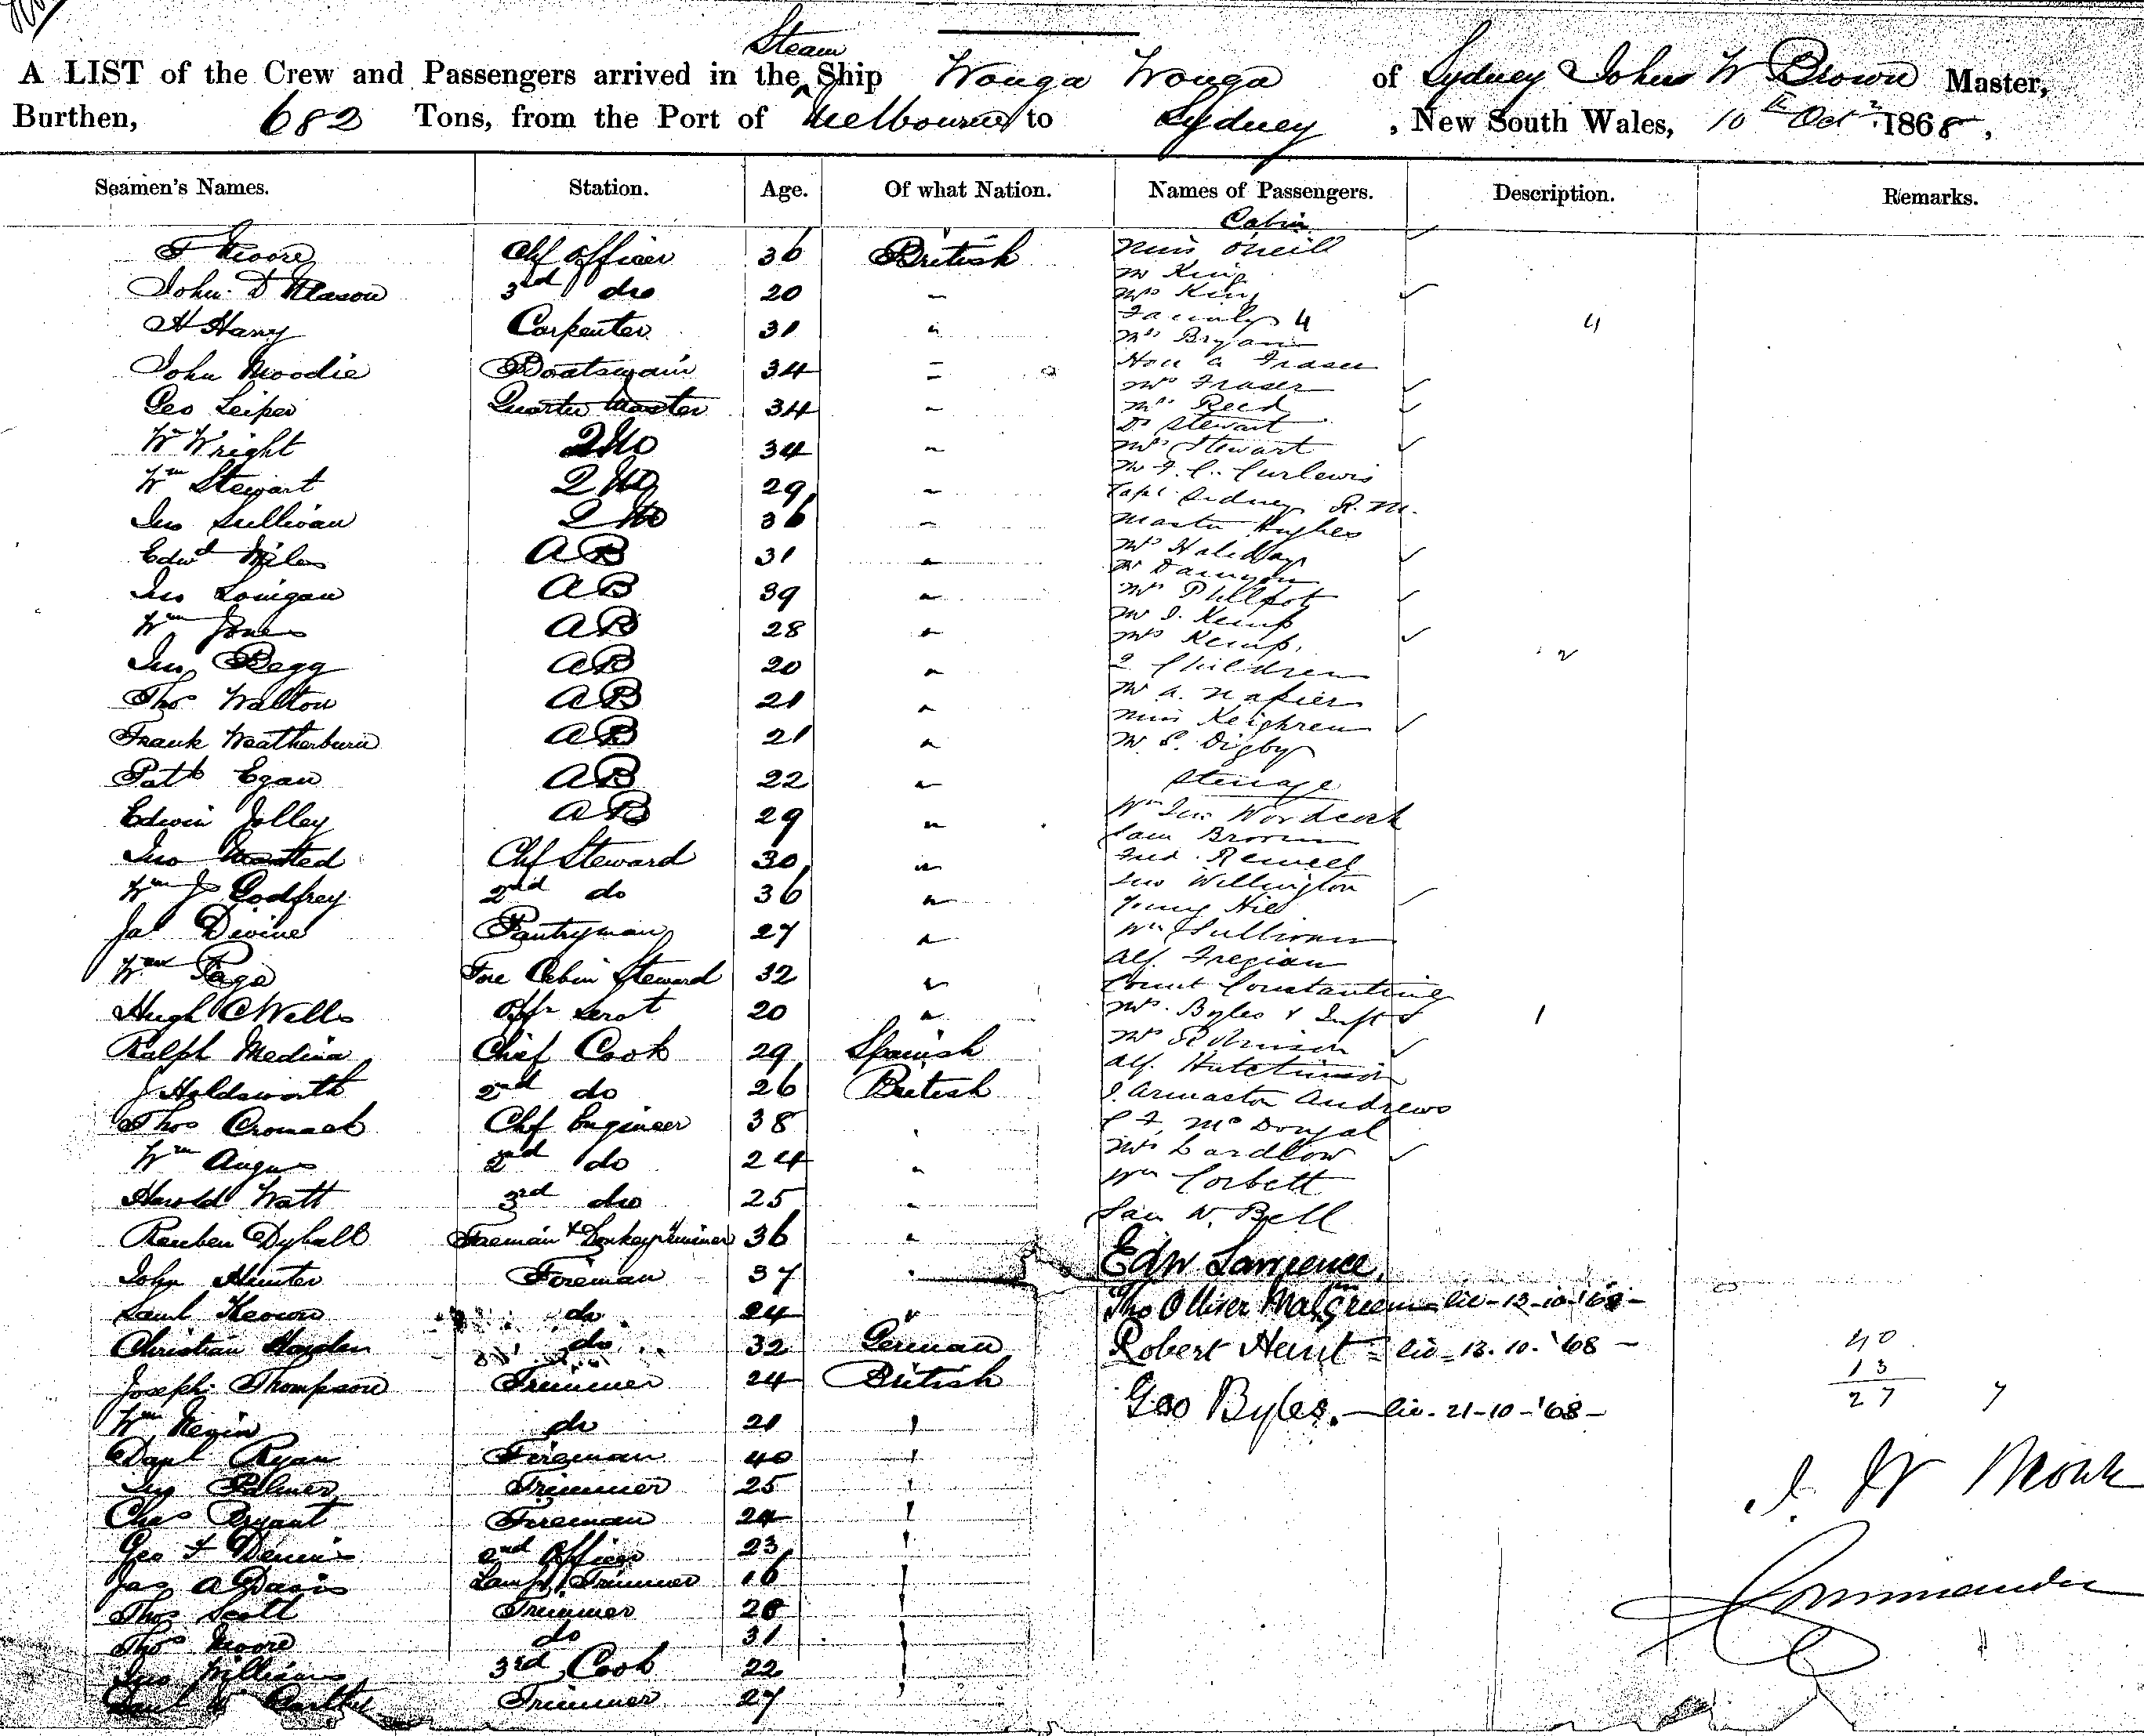 Steam
A LIST of the Crew and Passengers arrived in the Ship Wonga Wonga of Sydney John W Brown Master,
Burthen, 682 Tons, from the Port of Melbourne to Sydney, New South Wales, 10th Oct 1868,
Seamen's Names. Station. Age. Of what Nation. Names of Passengers. Description. Remarks.
F Moore Chf Officer 36 British
John D Mason 3rd do 20 "
H Harry Carpenter 31 "
John Moodie Boatswain 34 "
Geo Leiper Quarter Master 34 "
Wm Wright 2 Mo 34 "
Wm Stewart 2 Mo 29 "
Jno Sullivan 2 Mo 36 "
Edwd Miles AB 31 "
Jno Lonigan AB 39 "
Wm Jones AB 28 "
Jno Begg AB 20 "
Thos Walton AB 21 "
Frank Weatherburn AB 21 "
Patk Egan AB 22 "
Edwin Jolley AB 29 "
Jno Chf Steward 30 "
Wm J Godfrey 2nd do 36 "
Jas Divine Pantryman 27 "
Wm Page Fore Cabin Steward 32 "
Hugh C Wells 20 "
Ralph Medina Chief Cook 29 Spanish
J Holdsworth 2nd do 26 British
Thos Cromack Chf Engineer 38 "
Wm Angus 2nd do 24 "
Harold Watt 3rd do 25 "
Reuben Dyball Fireman & 36 "
John Hunter Fireman 37 "
Saml Keown do 24 "
Christian do 32 German
Joseph Thompson Trimmer 24 British
Wm do 21 "
Danl Ryan Fireman 40 "
Jno Palmer Trimmer 25 "
Chas Bryant Fireman 24 "
Geo F Dennis 2nd Officer 23 "
Jas A Davis Lamp Trimmer 16 "
Thos Scott Trimmer 28 "
Thos Moore do 31 "
Jno Williams 3rd Cook 22 "
Trimmer 27 "
Cabin
Miss O'neill
Mr King
Mrs King
Family 4 4
Mrs Bryan
Hon a Fraser
Mrs Fraser
Mrs Reed
Dr Stewart
Mrs Stewart
Mr F. C. Curlewis
Capt Sidney R. M.
Master Hughes
Mrs Haliday
Mr
Mrs Philpot
Mr J. Kemp
Mrs Kemp
2 Children 2
Mr A. Napier
Miss Keighren
Mr S. Digby
Steerage
Wm Jno Wordcock
Sam Brown
Fred.
Jno Willington
Young Hie
Wm Sullivan
Alf. Fregian
Count Constantine
Mrs Byles & Inft 1
Mrs Robinson
Alf. Hutchinson
J. Armaston Andrews
C F. McDougal
Mrs Lardlow
Wm Corbett
Sam W. Bell
Edw Lawrence
Thos Olliver Malgreem - lic - 13-10-'68 -
Robert Hunt = lic - 13. 10. '68 -
Geo Byles. - lic - 21-10-'68 -
40
13
27 7
J. W Monk
Commander